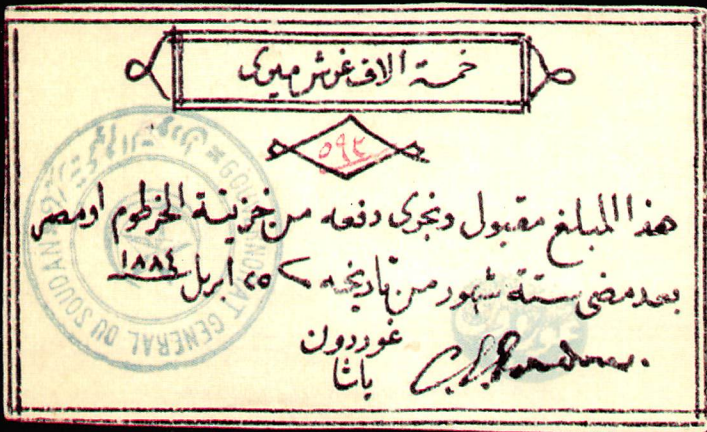 خمسة آلاف غرش ميرى
٥٩٢
هذا المبلغ مقبول ونجرى دفعه من خزينة الخرطوم او مصر
بعد مضى ستة شهور من تاريخه ٢٥ ابريل ١٨٨٤
غوردون
باشا
C. G. Gordon.
GOUVERNORAT GENERAL DU SOUDAN